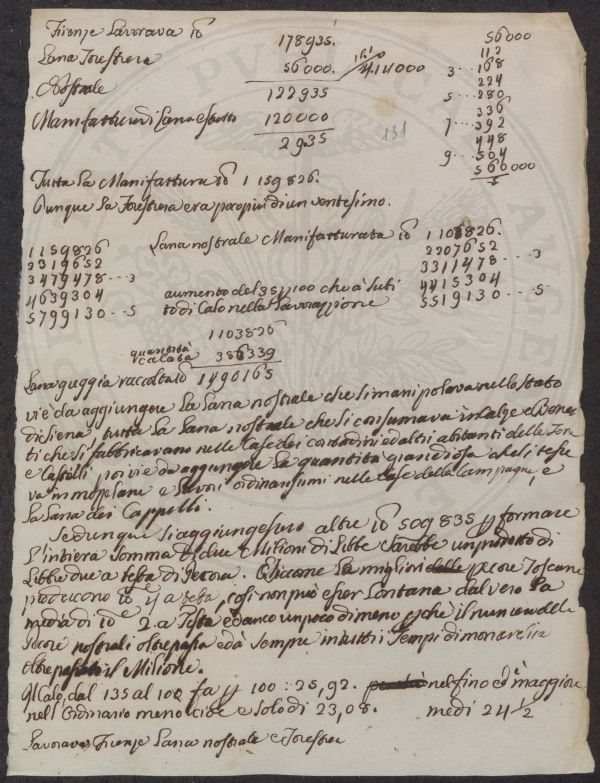 Firenze Lavorava lb 178935.
Lana Forestiera 56000. 414000
Nostrale 122935
Manifattura di Lana e stame 120000
2935
131
56000
112
3...168
224
5...280
336
7...392
448
9...504
560000
5
Tutta la Manifattura lb 1159826.
Dunque la Forestiera era poco più di un ventesimo.
Lana nostrale Manifatturata lb 1103826.
1159826
2319652
3479478...3
4639304
5799130...5
2207652
3311478...3
4415304
5519130...5
aumento del 35 p 100 che à subi
to di Calo nella Lavorazione
1103826
quantità
calata 386339
Lana greggia raccolta lb 1490165
vi è da aggiungere la Lana nostrale che si manipolava nello stato
di Siena, tutta la Lana nostrale che si consumava in Calze e Berret
ti che si fabbricavano nelle Case dei contadini ed altri abitanti delle Terre
e Castelli, poi vi è da aggiungere la quantità grandiosa che si tesse
va in mezzelane e lavori ordinarissimi nelle case della Campagna, e
la Lana dei Cappelli.
Se dunque si aggiungessero altre lb 509835 p formare
l'intiera Somma di due Milioni di Libbe sarebbe un prodotto di
Libbe due a testa di Pecora. Siccome le migliori pecore Toscane
producono lb 4 a testa, così non può esser Lontana dal vero la
media di lb 2 a Testa ed anco un poco di meno p chè il numero delle
Pecore nostrali oltrepassa ed à sempre in tutti i Tempi di monarchia
oltrepassato il Milione.
Il Calo, dal 135 al 100 fa p 100: 25,92. nel fino ed è maggiore
nell'Ordinario meno cioè e solo di 23,08. medi 24 1/2
Lavorava Firenze Lana nostrale e Forestiera